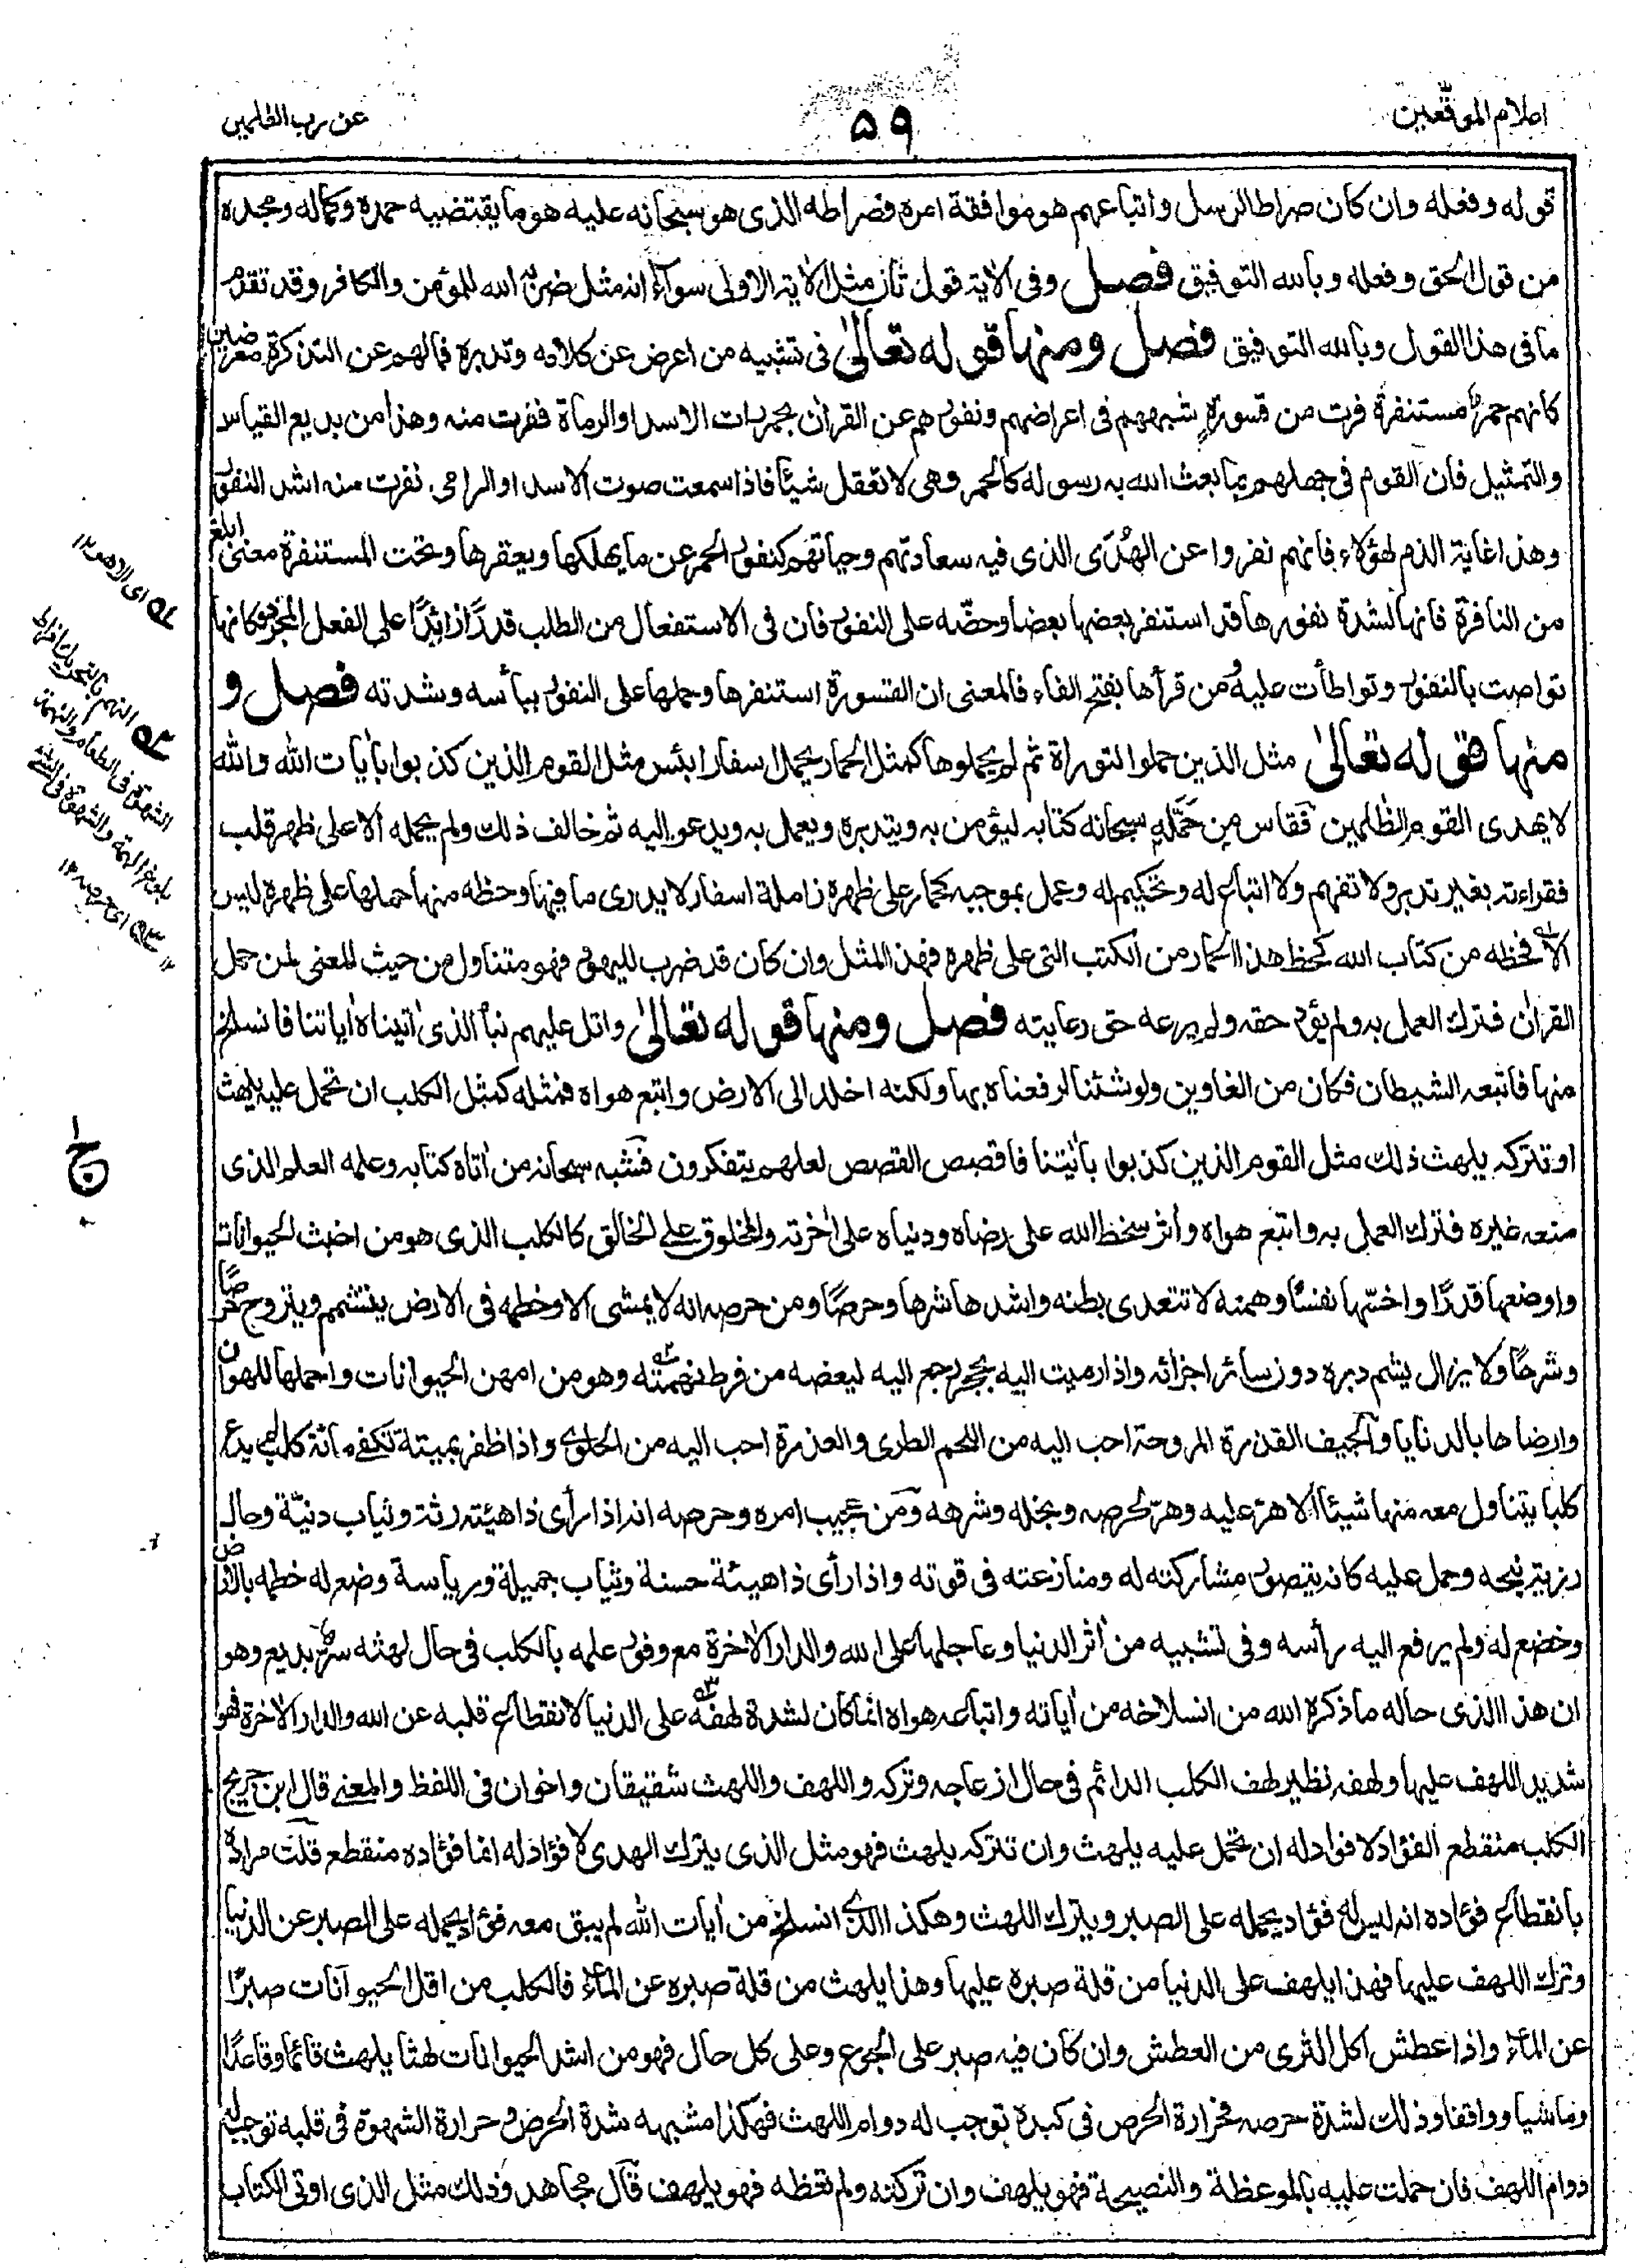 اعلام الموقّعين
۵۹
عن رب العٰلمين
قوله وفعله وان كان صراط الرسل واتباعهم هو موافقة امره فصراطه الذى هو سبحانه عليه هو ما يقتضيه حمده وكماله ومجده
من قول الحق وفعله وبالله التوفيق فصل وفى الاٰية قول ثان مثل الاٰية الاولى سواء انه مثل ضربه الله للمؤمن والكافر وقد تقدم
ما فى هذا القول وبالله التوفيق فصل ومنها قوله تعالىٰ فى تشبيه من اعرض عن كلامه وتدبره فما لهم عن التذكرة معرضين
كانهم حمر مستنفرة فرت من قسورة شبههم فى اعراضهم ونفورهم عن القراٰن بحمر رات الاسد او الرماة ففرت منه وهذا من بديع القياس
والتمثيل فان القوم فى جهلهم بما بعث الله به رسوله كالحمر وهى لا تعقل شيئا فاذا سمعت صوت الاسد او الرامى نفرت منه اشد النفور
وهذا غاية الذم لهؤلاء فانهم نفروا عن الهُدٰى الذى فيه سعادتهم وحياتهم كنفور الحمر عن ما يهلكها ويعقرها وتحت المستنفرة معنى ابلغ
من النافرة فانها لشدة نفورها قد استنفر بعضها بعضا وحضّه على النفور فان فى الاستفعال من الطلب قدرًا زائدًا على الفعل المجرد فكانها
تواصت بالنفور وتواطأت عليه ومن قرأها بفتح الفاء فالمعنى ان القسورة استنفرها وحملها على النفور ببأسه وشدته فصل و
منها قوله تعالىٰ مثل الذين حملوا التوراة ثم لم يحملوها كمثل الحمار يحمل اسفارا بئس مثل القوم الذين كذبوا باٰيات الله والله
لا يهدى القوم الظٰلمين فقاس من حَمَّله سبحانه كتابه ليؤمن به ويتدبره ويعمل به ويدعو اليه ثم خالف ذلك ولم يحمله الا على ظهر قلب
فقراءته بغير تدبر ولا تفهم ولا اتباع له وتحكيم له وعمل بموجبه كحمار على ظهره زاملة اسفار لا يدرى ما فيها وحظه منها حملها على ظهره ليس
الا فحظه من كتاب الله كحظ هذا الحمار من الكتب التى على ظهره فهذا المثل وان كان قد ضرب لليهود فهو متناول من حيث المعنى لمن حمل
القراٰن فترك العمل به ولم يؤد حقه ولم يرعه حق رعايته فصل ومنها قوله تعالىٰ واتل عليهم نبأ الذى اٰتيناه اٰياتنا فانسلخ
منها فاتبعه الشيطان فكان من الغاوين ولو شئنا لرفعناه بها ولكنه اخلد الى الارض واتبع هواه فمثله كمثل الكلب ان تحمل عليه يلهث
او تتركه يلهث ذلك مثل القوم الذين كذبوا باٰيٰتنا فاقصص القصص لعلهم يتفكرون فشبه سبحانه من اٰتاه كتابه وعلمه العلم الذى
منعه غيره فترك العمل به واتبع هواه واٰثر سخط الله على رضاه ودنياه على اٰخرته والمخلوق على الخالق كالكلب الذى هو من اخبث الحيوانات
واوضعها قدرًا واخسّها نفسًا وهمته لا تتعدى بطنه واشدها شرها وحرصًا ومن حرصه انه لا يمشى الا وخطمه فى الارض يتشمم ويتروح حرصًا
وشرهًا ولا يزال يشم دبره دون سائر اجزائه واذا رميت اليه بحجر رجع اليه ليعضه من فرط نهمته وهو من امهن الحيوانات واحملها للهوان
وارضاها بالدنايا والجيف القذرة المروحة احب اليه من اللحم الطرى والعذرة احب اليه من الحلوى واذا ظفر بميتة تكفى مائة كلب لم يدع
كلبا يتناول معه منها شيئا الا هرّ عليه وهرّ لحرصه وبخله وشرهه ومن عجيب امره وحرصه انه اذا رأى ذا هيئة رثة وثياب دنيّة وحال
رزية نبحه وحمل عليه كانه يتصور مشاركته له ومنازعته فى قوته واذا رأى ذا هيئة حسنة وثياب جميلة ورياسة وضع له خطمه بالارض
وخضع له ولم يرفع اليه رأسه وفى تشبيه من اٰثر الدنيا وعاجلها على الله والدار الاٰخرة مع وفور علمه بالكلب فى حال لهثه سر بديع وهو
ان هذا الذى حاله ما ذكره الله من انسلاخه من اٰياته واتباعه هواه انما كان لشدة لهفه على الدنيا لانقطاع قلبه عن الله والدار الاٰخرة فهو
شديد اللهف عليها ولهفه نظير لهف الكلب الدائم فى حال ازعاجه وتركه واللهف واللهث شقيقان واخوان فى اللفظ والمعنى قال ابن جريج
الكلب منقطع الفؤاد لا فؤاد له ان تحمل عليه يلهث وان تتركه يلهث فهو مثل الذى يترك الهدى لا فؤاد له انما فؤاده منقطع قلت مراده
بانقطاع فؤاده انه ليس له فؤاد يحمله على الصبر ويترك اللهث وهكذا الذى انسلخ من اٰيات الله لم يبق معه فؤاد يحمله على الصبر عن الدنيا
وترك اللهف عليها فهذا يلهف على الدنيا من قلة صبره عليها وهذا يلهث من قلة صبره عن الماء فالكلب من اقل الحيوانات صبرًا
عن الماء واذا عطش اكل الثرى من العطش وان كان فيه صبر على الجوع وعلى كل حال فهو من اشد الحيوانات لهثا يلهث قائما وقاعدًا
وماشيا وواقفا وذلك لشدة حرصه فحرارة الحرص فى كبده توجب له دوام اللهث فهكذا مشبهه شدة الحرص وحرارة الشهوة فى قلبه توجب له
دوام اللهف فان حملت عليه بالموعظة والنصيحة فهو يلهف وان تركته ولم تعظه فهو يلهف قال مجاهد وذلك مثل الذى اوتى الكتاب
اى الاهم ۱۲
النهم بالتحريك افراط
الشهوة فى الطعام والنهمة
بلوغ الهمة والشهوة فى الشئ
اى حرصه ۱۲
ج